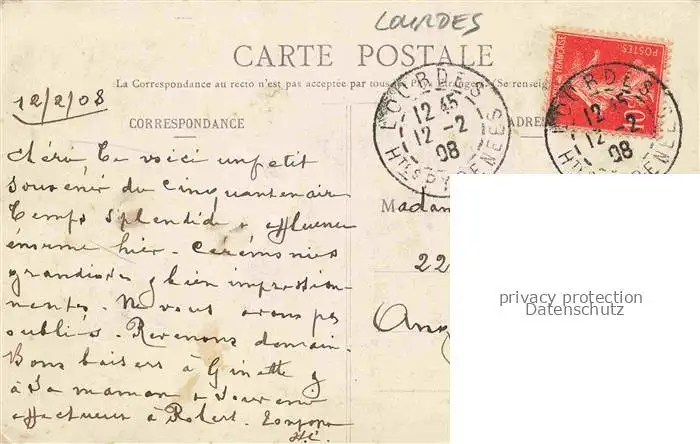 LOURDES
CARTE POSTALE
La Correspondance au recto n'est pas acceptée par tous (Se renseign
12/2/08
CORRESPONDANCE
ADRES
LOURDES
12 45
12-2
08
HTES PYRENEES
LOURDES
12 45
12-2
08
HTES PYRENEES
POSTES
FRANCAISE
Madam
22
Ang
Chéri te voici un petit
souvenir du Cinquantenair
Temps splendide affluence
énorme hier. Cérémonies
grandioses bien impression-
nantes. Ne vous avons pas
oubliés. Revenons demain.
Bons baisers à Ginette
à sa maman souvenir
affectueux à Robert.
privacy protection
Datenschutz